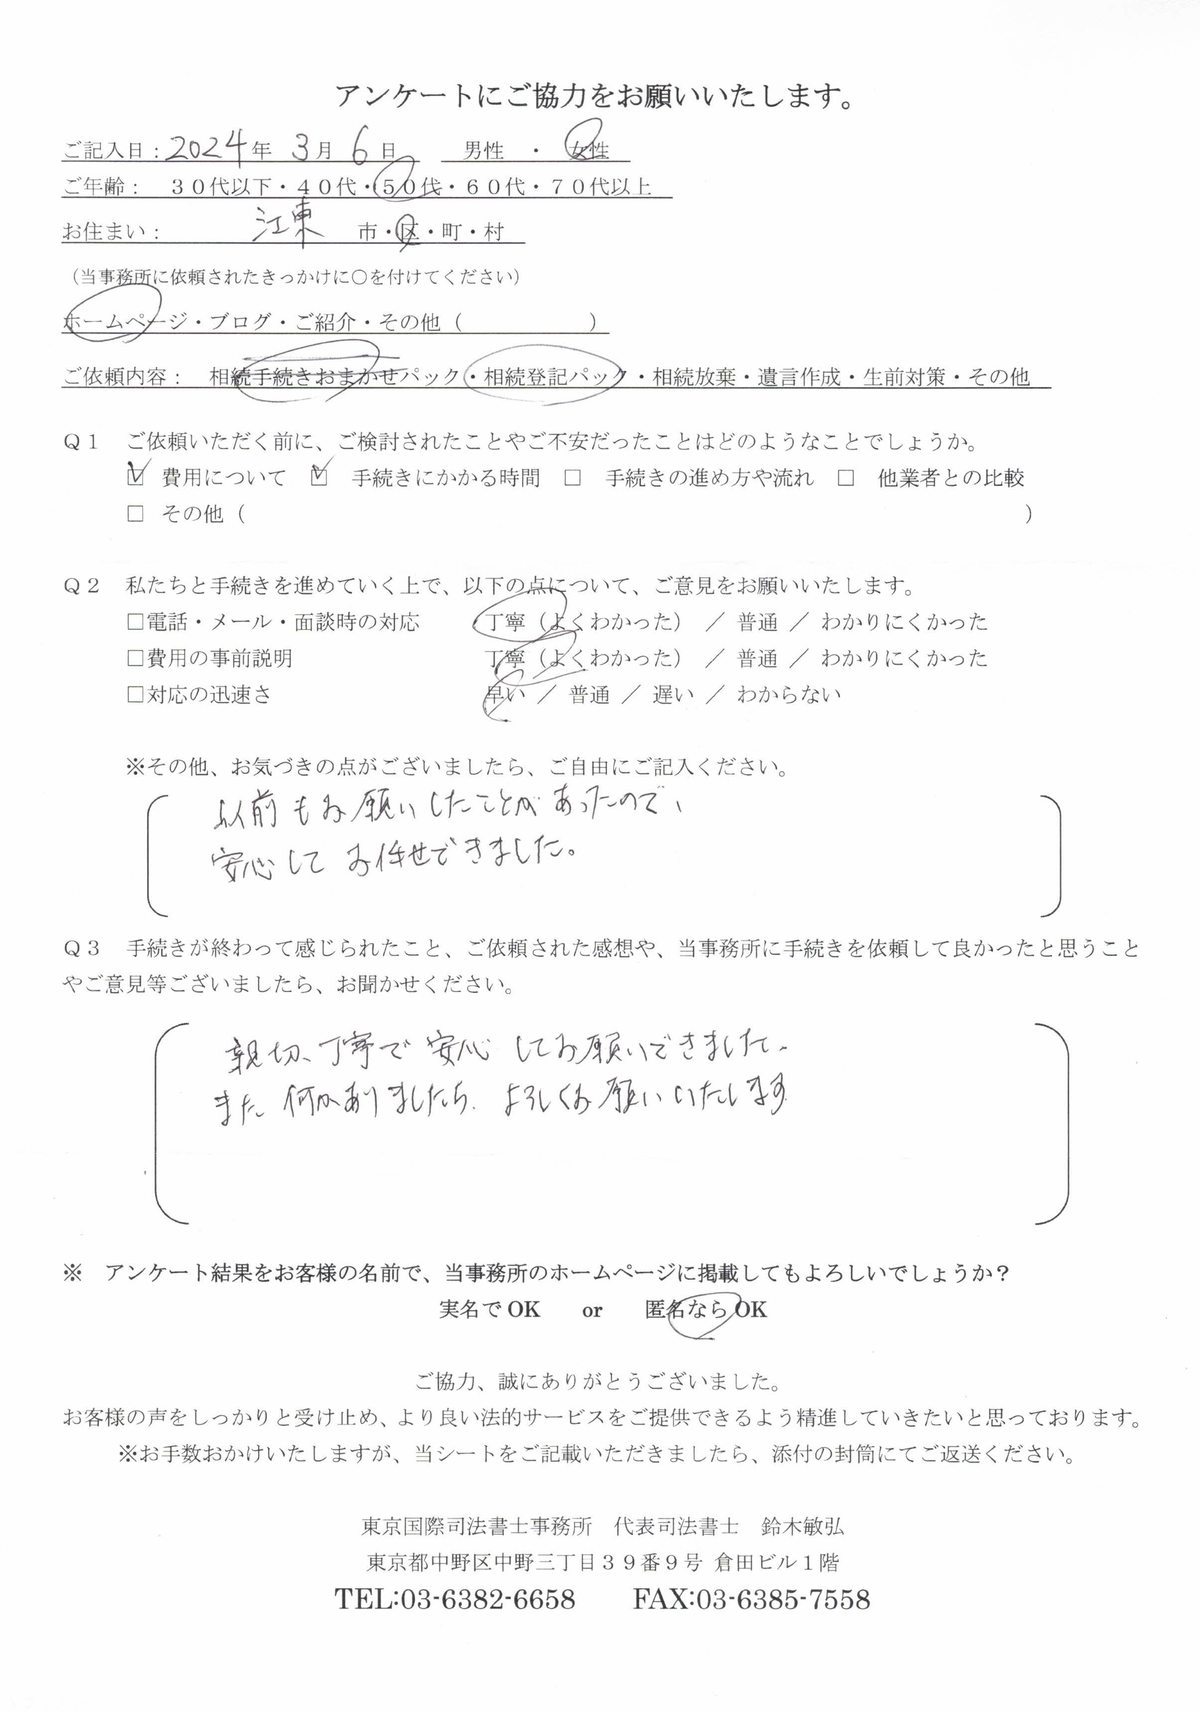 アンケートにご協力をお願いいたします。
ご記入日：2024年 3月 6日　男性　・　女性
ご年齢：　３０代以下・４０代・５０代・６０代・７０代以上
お住まい：　江東　市・区・町・村
（当事務所に依頼されたきっかけに○を付けてください）
ホームページ・ブログ・ご紹介・その他（　　　　　　）
ご依頼内容：　相続手続きおまかせパック・相続登記パック・相続放棄・遺言作成・生前対策・その他
Ｑ１　ご依頼いただく前に、ご検討されたことやご不安だったことはどのようなことでしょうか。
☑　費用について　☑　手続きにかかる時間　□　手続きの進め方や流れ　□　他業者との比較
□　その他（　　　　　　　　　　　　　　　　）
Ｑ２　私たちと手続きを進めていく上で、以下の点について、ご意見をお願いいたします。
□電話・メール・面談時の対応　　　丁寧（よくわかった）　／　普通　／　わかりにくかった
□費用の事前説明　　　丁寧（よくわかった）　／　普通　／　わかりにくかった
□対応の迅速さ　　　早い　／　普通　／　遅い　／　わからない
※その他、お気づきの点がございましたら、ご自由にご記入ください。
以前もお願いしたことがあったので、
安心して お任せできました。
Ｑ３　手続きが終わって感じられたこと、ご依頼された感想や、当事務所に手続きを依頼して良かったと思うこと
やご意見等ございましたら、お聞かせください。
親切、丁寧で 安心 してお願いできました。
また 何かありましたら、よろしくお願いいたします
※　アンケート結果をお客様の名前で、当事務所のホームページに掲載してもよろしいでしょうか？
実名で OK　　or　　匿名なら OK
ご協力、誠にありがとうございました。
お客様の声をしっかりと受け止め、より良い法的サービスをご提供できるよう精進していきたいと思っております。
※お手数おかけいたしますが、当シートをご記載いただきましたら、添付の封筒にてご返送ください。
東京国際司法書士事務所　代表司法書士　鈴木敏弘
東京都中野区中野三丁目３９番９号 倉田ビル１階
TEL:03-6382-6658　　FAX:03-6385-7558